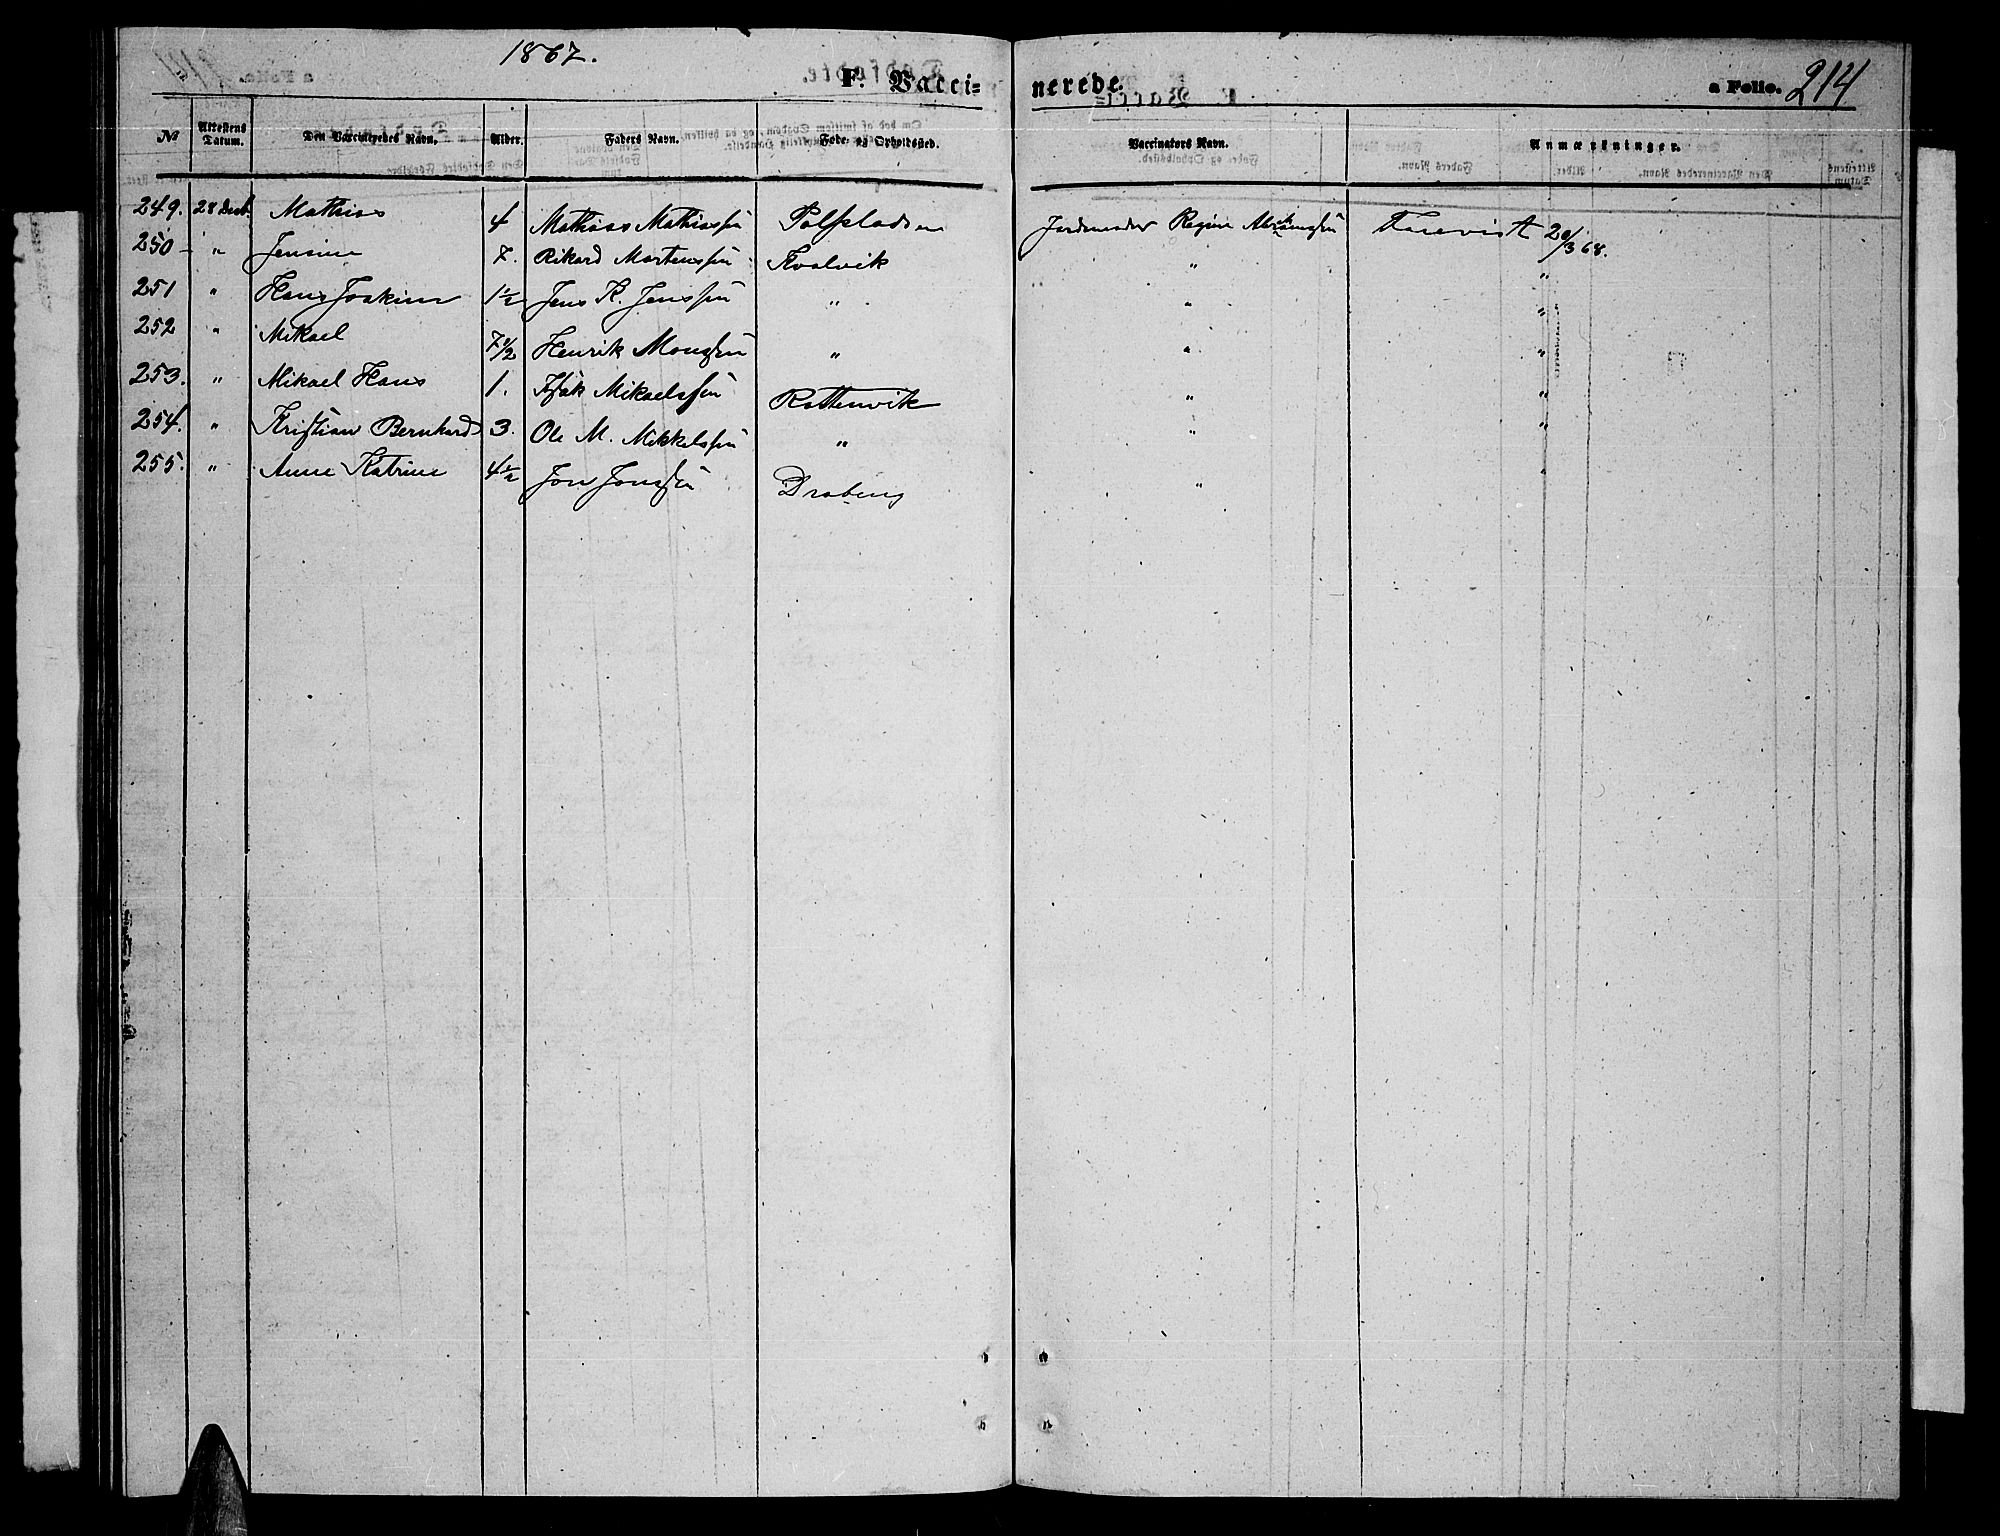 1867.
F. Vacci= nerede. a Folio. 214
No Attestens Datum. Den Vaccineredes Navn. Alder. Faders Navn. Føde- og Opholdssted. Vaccinators Navn. Anmærkninger.
249. 28 Decb. Mathias 4 Mathias Mathiassen Jordemoder Regine Abrahamsen Forevist 20/3 68.
250 - " Jensine 7. Rikard Martenssen Kvalvik " "
251 " Hans Joakim 1½ Jens K. Jenssen " " "
252 " Mikael 7½ Henrik Monssen " " "
253. " Mikael Hans 1. Isak Mikaelssen Rottenvik " "
254. " Kristian Bernhard 3. Ole M. Mikkelssen " " "
255. " Anne Katrine 4½ Jon Jonssen Drabeng " "